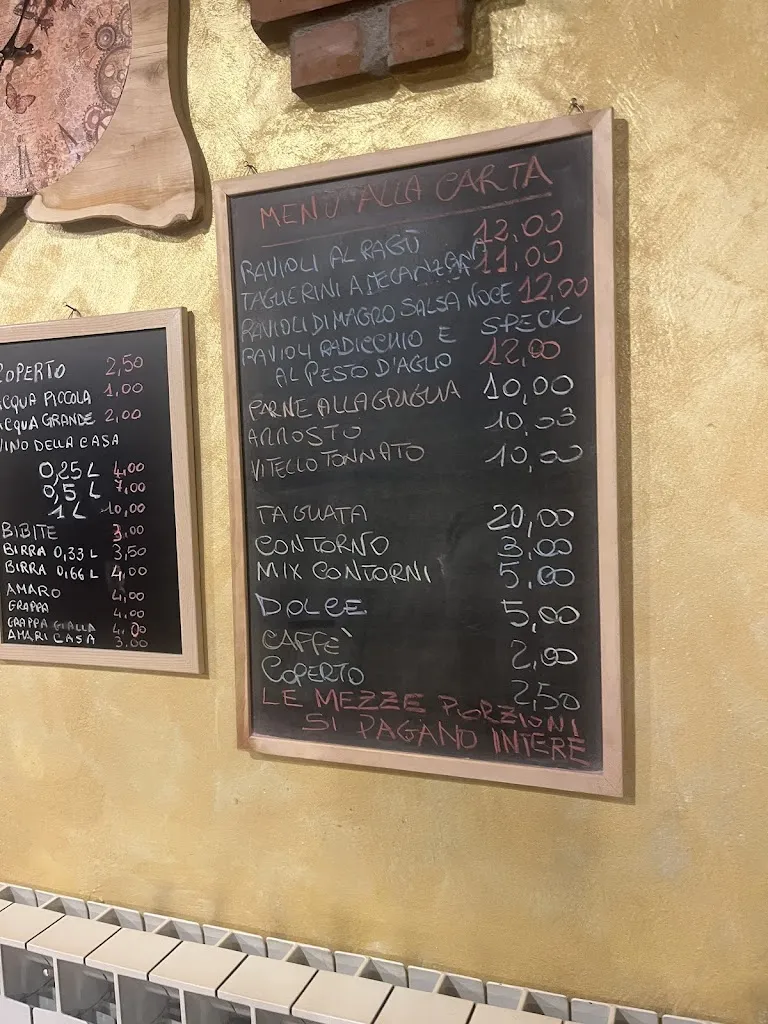 MENÙ ALLA CARTA
RAVIOLI AL RAGÙ 12,00
TAGLIERINI A 11,00
RAVIOLI DI MAGRO SALSA NOCE 12,00
RAVIOLI RADICCHIO E SPECK
AL PESTO D'AGLIO 12,00
CARNE ALLA GRIGLIA 10,00
ARROSTO 10,00
VITELLO TONNATO 10,00
TAGLIATA 20,00
CONTORNO 3,00
MIX CONTORNI 5,00
DOLCE 5,00
CAFFÈ 2,00
COPERTO 2,50
LE MEZZE PORZIONI
SI PAGANO INTERE
COPERTO 2,50
ACQUA PICCOLA 1,00
ACQUA GRANDE 2,00
VINO DELLA CASA
0,25 L 4,00
0,5 L 7,00
1 L 10,00
BIBITE 3,00
BIRRA 0,33 L 3,50
BIRRA 0,66 L 4,00
AMARO 4,00
GRAPPA 4,00
GRAPPA GIALLA 4,00
AMARI CASA 3,00